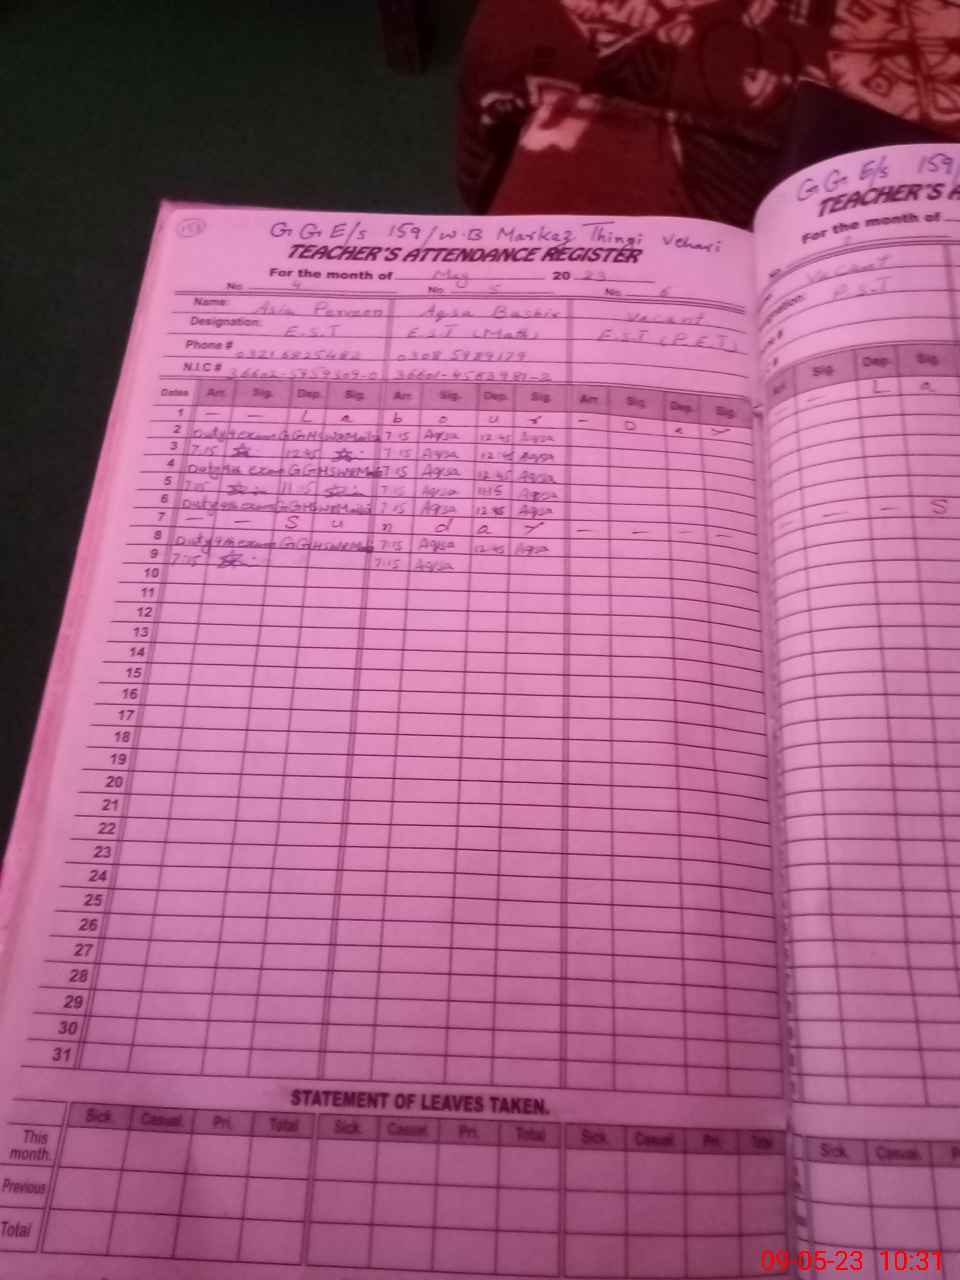 153
G G E/s 159/W.B Markaz Thingi Vehari
TEACHER'S ATTENDANCE REGISTER
For the month of May 2023
No 4 No 5 No 6
Name: Asia Parveen Aqsa Bashir Vacant
Designation: E.S.T E.S.T (Math) E.S.T (P.E.T)
Phone # 03216825482 0308 5989179
N.I.C #
Dates Arr. Sig. Dep. Sig. Arr. Sig. Dep. Sig. Arr. Sig. Dep. Sig.
1 — — L a b o u r — D a y
2 7:15 Aqsa 12:45 Aqsa
3 7:15 12:45 7:15 Aqsa 12:45 Aqsa
4 7:15 Aqsa 12:45 Aqsa
5 7:15 11:15 7:15 Aqsa 11:15 Aqsa
6 7:15 Aqsa 12:45 Aqsa
7 — — S u n d a y — — — —
8 7:15 Aqsa 12:45 Aqsa
9 7:15 7:15 Aqsa
10
11
12
13
14
15
16
17
18
19
20
21
22
23
24
25
26
27
28
29
30
31
STATEMENT OF LEAVES TAKEN.
Sick. Casual. Pri. Total Sick. Casual. Pri. Total Sick. Casual. Pri. Total
This month.
Previous
Total
G G E/s 159/
TEACHER'S A
For the month of
Vacant
P.S.T
Arr. Sig. Dep. Sig.
— — L a
— — — S
Sick. Casual. P
09-05-23 10:31